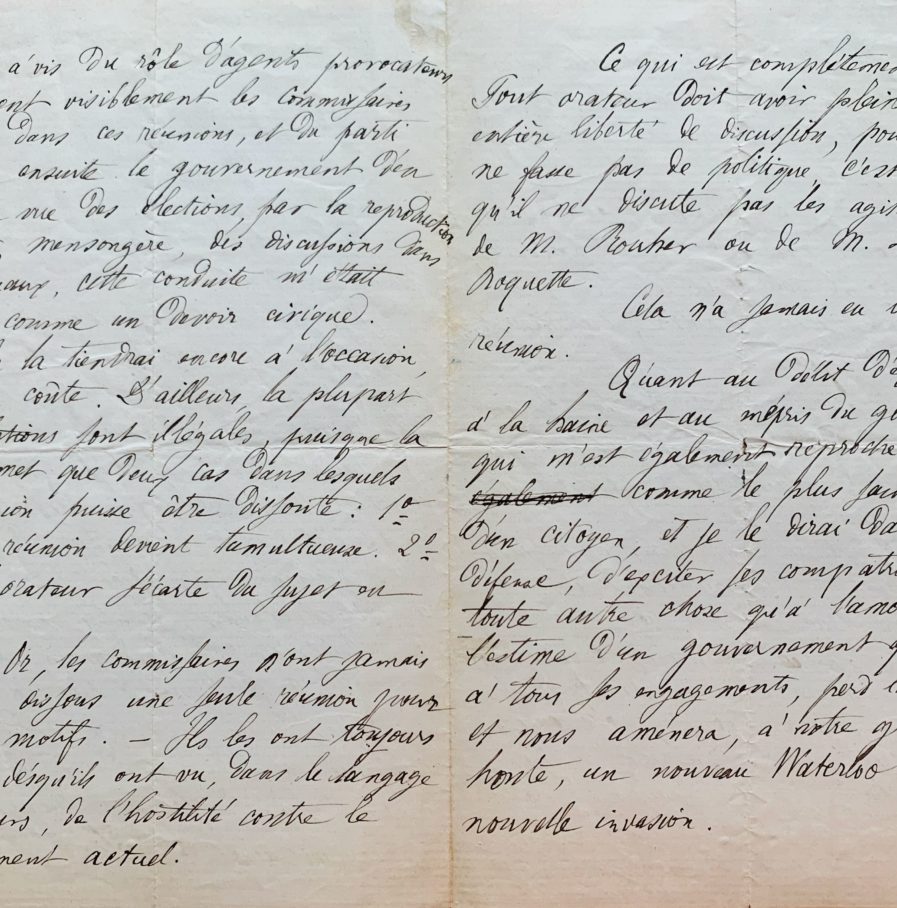 à vis du rôle d'agents provocateurs
ent visiblement les commissaires
dans ces réunions, et du parti
ensuite le gouvernement d'en
vue des élections, par la reproduction
mensongère, des discussions dans
aux, cette conduite m'était
comme un devoir civique.
la tiendrai encore à l'occasion,
coûte. D'ailleurs, la plupart
tions sont illégales, puisque la
met que deux cas dans lesquels
ion puisse être dissoute : 1º
réunion devient tumultueuse. 2º
orateur s'écarte du sujet en
Or, les commissaires n'ont jamais
dissous une seule réunion pour
motifs. — Ils les ont toujours
désqu'ils ont vu, dans le langage
urs, de l'hostilité contre le
ment actuel.
Ce qui est complètemen
Tout orateur doit avoir plein
entière liberté de discussion, pou
ne fasse pas de politique, c'est
qu'il ne discute pas les agis
de M. Rouher ou de M.
Roquette.
Cela n'a jamais eu
réunion.
Quant au délit d'e
à la haine et au mépris du go
qui m'est également reproché
également comme le plus sa
d'un citoyen, et je le dirai da
défense, d'exciter ses compatri
toute autre chose qu'à l'amo
l'estime d'un gouvernement q
à tous ses engagements, perd
et nous amènera, à notre g
honte, un nouveau Waterloo
nouvelle invasion.